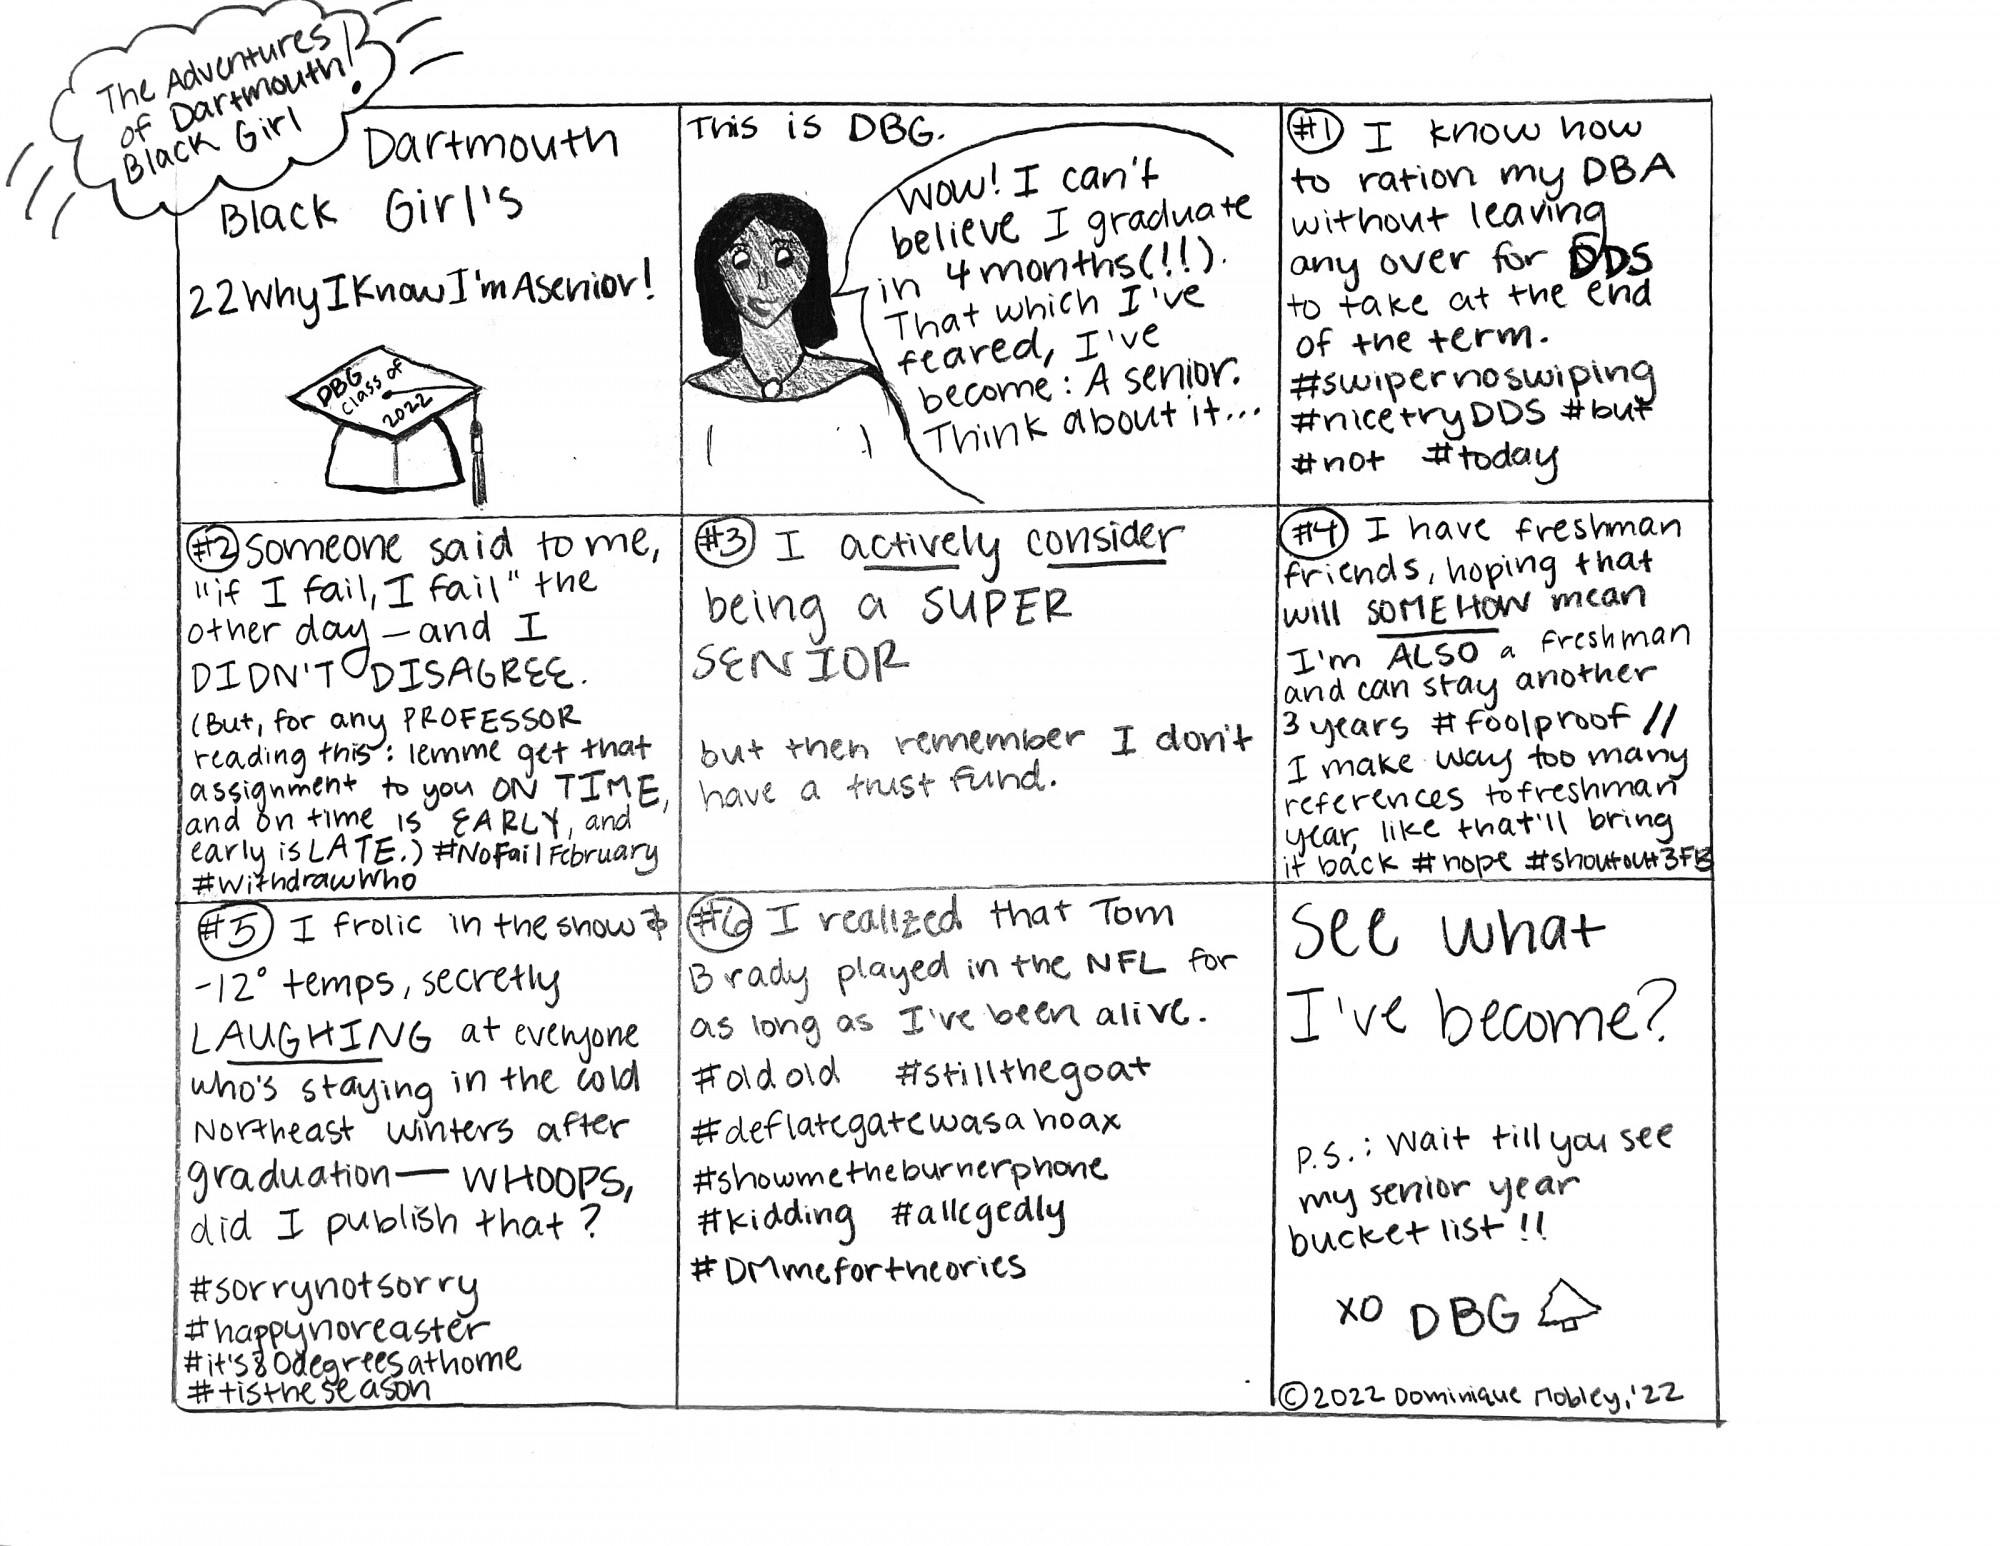 The Adventures
of Dartmouth
Black Girl!
Dartmouth
Black Girl's
22WhyIKnowI'mAsenior!
DBG
Class of
2022
This is DBG.
Wow! I can't
believe I graduate
in 4 months(!!).
That which I've
feared, I've
become: A senior.
Think about it...
#1 I know how
to ration my DBA
without leaving
any over for DDS
to take at the end
of the term.
#swipernoswiping
#nicetryDDS #but
#not #today
#2 Someone said to me,
"if I fail, I fail" the
other day — and I
DIDN'T DISAGREE.
(But, for any PROFESSOR
reading this: lemme get that
assignment to you ON TIME,
and on time is EARLY, and
early is LATE.) #NoFailFebruary
#WithdrawWho
#3 I actively consider
being a SUPER
SENIOR
but then remember I don't
have a trust fund.
#4 I have freshman
friends, hoping that
will SOMEHOW mean
I'm ALSO a freshman
and can stay another
3 years #foolproof //
I make way too many
references to freshman
year, like that'll bring
it back #nope #shoutout3FB
#5 I frolic in the show &
-12° temps, secretly
LAUGHING at everyone
who's staying in the cold
Northeast winters after
graduation — WHOOPS,
did I publish that?
#sorrynotsorry
#happynoreaster
#it's80degreesathome
#tistheseason
#6 I realized that Tom
Brady played in the NFL for
as long as I've been alive.
#oldold #stillthegoat
#deflategatewasahoax
#showmetheburnerphone
#kidding #allegedly
#DMmefortheories
See what
I've become?
P.S.: Wait till you see
my senior year
bucket list!!
XO DBG
©2022 Dominique Mobley,'22